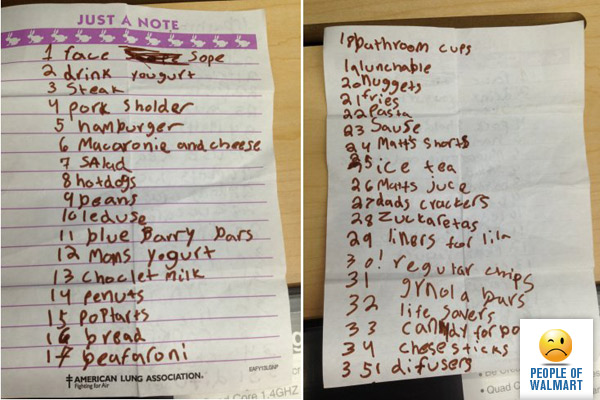 JUST A NOTE
1 face sope
2 drink yougurt
3 Steak
4 pork sholder
5 hamburger
6 Macaronie and cheese
7 SAlad
8 hotdogs
9 beans
10 leduse
11 blue Barry bars
12 Moms yogurt
13 Choclet Milk
14 penuts
15 poptarts
16 bread
17 beafaroni
EAFY13LGNP
AMERICAN LUNG ASSOCIATION.
Fighting for Air
Core 1.4GHZ
18 bathroom cups
19 lunchable
20 Nuggets
21 fries
22 Pasta
23 Sause
24 Matt's shorts
25 ice tea
26 Matts juce
27 dads crackers
28 Zuckaretas
29 liners for lila
30! regular chips
31 grnola bars
32 life savers
33 for
34 chese sticks
35! difusers
PEOPLE OF
WALMART